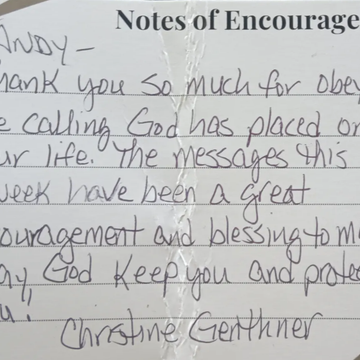 Notes of Encourage
ANDY –
hank you so much for obey
e calling God has placed on
ur life. The messages this
week have been a great
ouragement and blessing to m
ay God keep you and protec
u!
Christine Genthner